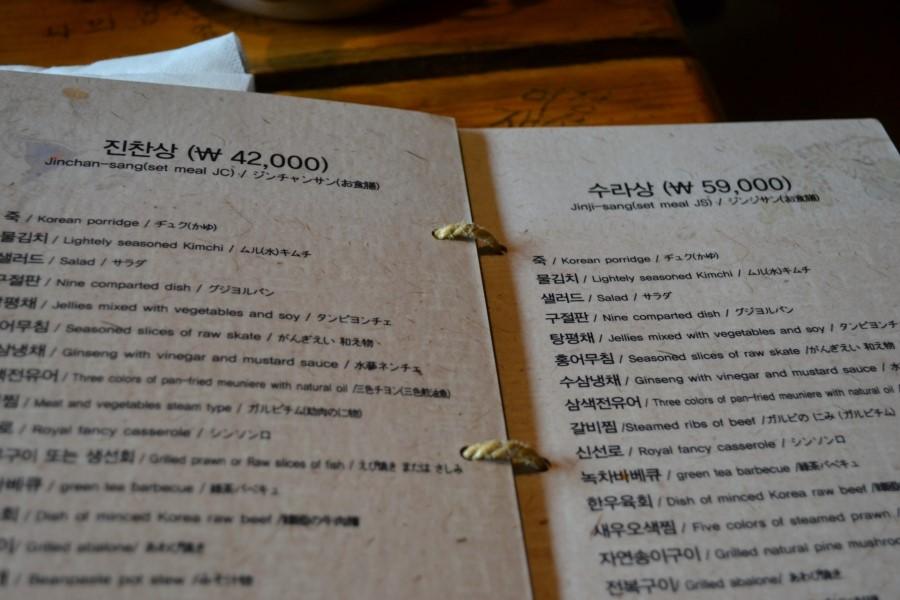 나의
진찬상 (₩ 42,000)
Jinchan-sang(set meal JC) / ジンチャンサン(お食膳)
죽 / Korean porridge / ヂュク(かゆ)
물김치 / Lightely seasoned Kimchi / ムル(水)キムチ
샐러드 / Salad / サラダ
구절판 / Nine comparted dish / グジョルパン
탕평채 / Jellies mixed with vegetables and soy / タンピヨンチェ
어무침 / Seasoned slices of raw skate / がんぎえい 和え物
삼냉채 / Ginseng with vinegar and mustard sauce / 水蔘ネンチェ
색전유어 / Three colors of pan-fried meuniere with natural oil /三色チヨン(三色煎油魚)
찜 / Meat and vegetables steam type / ガルビチム(助肉のに物)
로 / Royal fancy casserole / シンソンロ
구이 또는 생선회 / Grilled prawn or Raw slices of fish / えび焼き または さしみ
바베큐 / green tea barbecue /緑茶バベキュ
회 / Dish of minced Korea raw beef
이/ Grilled abalone/ あわび焼き
/ Beanpaste pot stew /みそ汁物
수라상 (₩ 59,000)
Jinji-sang(set meal JS) / ジンジサン(お食膳)
죽 / Korean porridge / ヂュク(かゆ)
물김치 / Lightely seasoned Kimchi / ムル(水)キムチ
샐러드 / Salad / サラダ
구절판 / Nine comparted dish / グジョルパン
탕평채 / Jellies mixed with vegetables and soy / タンピヨンチ
홍어무침 / Seasoned slices of raw skate /がんぎえい 和え物
수삼냉채 / Ginseng with vinegar and mustard sauce / 水
삼색전유어 / Three colors of pan-fried meuniere with natural oil
갈비찜 /Steamed ribs of beef /ガルビの にみ (ガルビチム)
신선로 / Royal fancy casserole / シンソンロ
녹차바베큐 / green tea barbecue /緑茶バベキュ
한우육회 / Dish of minced Korea raw beef
새우오색찜 / Five colors of steamed prawn /
자연송이구이 / Grilled natural pine mushroo
전복구이/ Grilled abalone/ あわび焼き